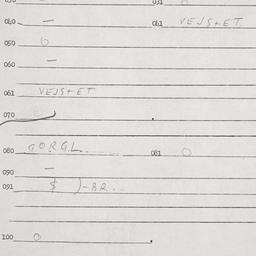 031
040 —
041 VEJStET
050 6
060 —
061 VEJStET
070
080 GORGL.
081 0
090 —
091
100 0